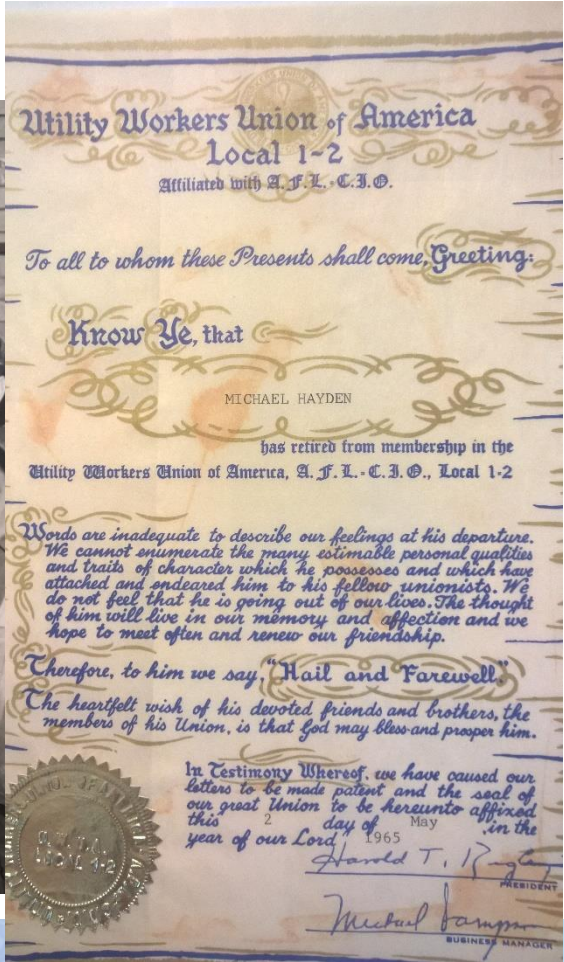 Utility Workers Union of America
Local 1-2
Affiliated with A.F.L.-C.I.O.
To all to whom these Presents shall come, Greeting:
Know Ye, that
MICHAEL HAYDEN
has retired from membership in the
Utility Workers Union of America, A.F.L.-C.I.O., Local 1-2
Words are inadequate to describe our feelings at his departure.
We cannot enumerate the many estimable personal qualities
and traits of character which he possesses and which have
attached and endeared him to his fellow unionists. We
do not feel that he is going out of our lives. The thought
of him will live in our memory and affection and we
hope to meet often and renew our friendship.
Therefore, to him we say, "Hail and Farewell."
The heartfelt wish of his devoted friends and brothers, the
members of his Union, is that God may bless and prosper him.
In Testimony Whereof, we have caused our
letters to be made patent and the seal of
our great Union to be hereunto affixed
this 2 day of May in the
year of our Lord 1965
Harold T.
PRESIDENT
Michael
BUSINESS MANAGER
LOCAL 1-2